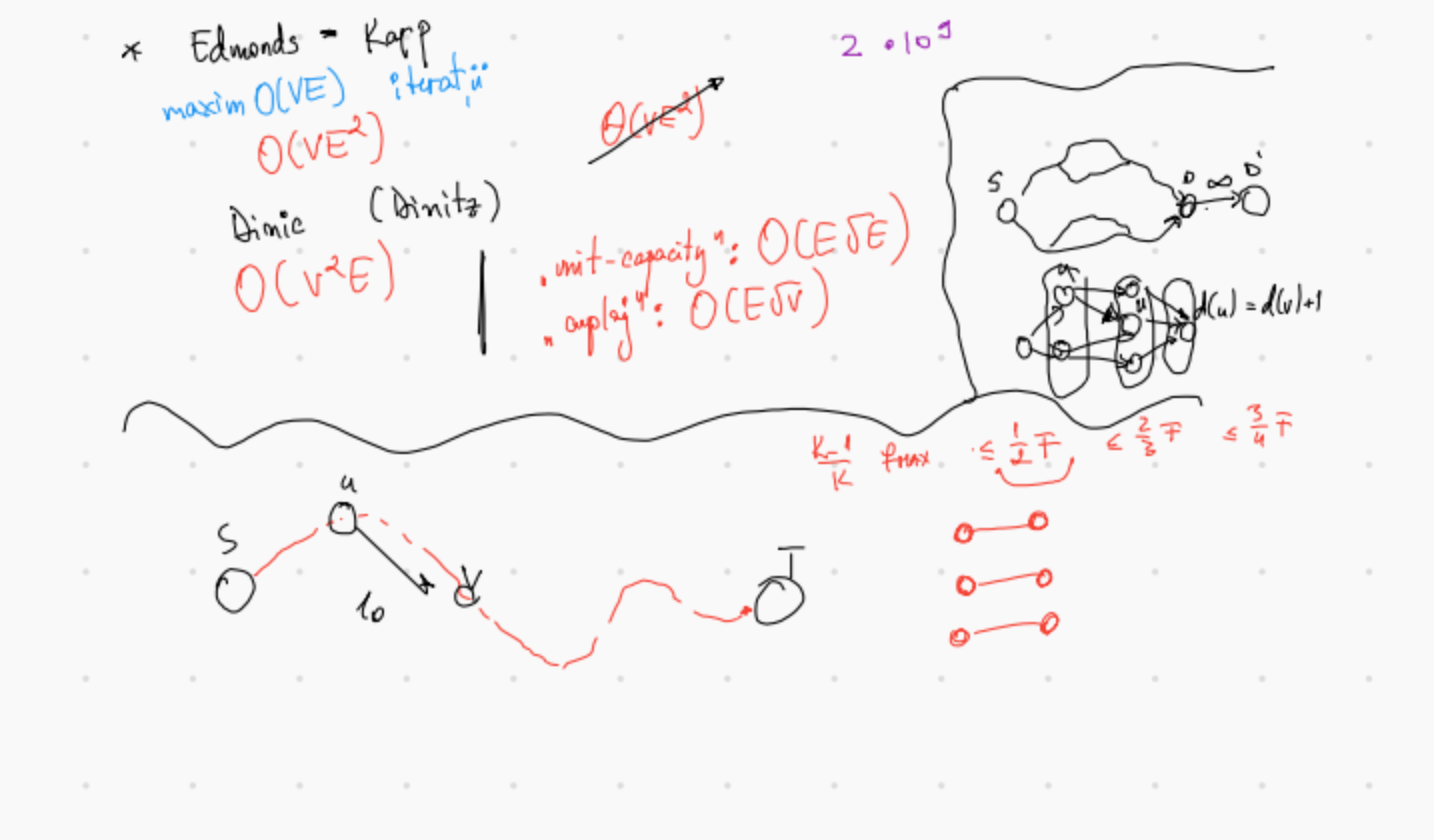 * Edmonds - Karp
maxim O(VE) iterații
O(VE²)
Θ(VE²)
2 · 10⁹
Dinic (Dinitz)
O(V²E)
„unit-capacity": O(E√E)
„cuplaj": O(E√V)
S D ∞ D'
u
d(u) = d(v)+1
K-1/K fmax ≤ 1/2 F ≤ 2/3 F ≤ 3/4 F
S u 10 V T